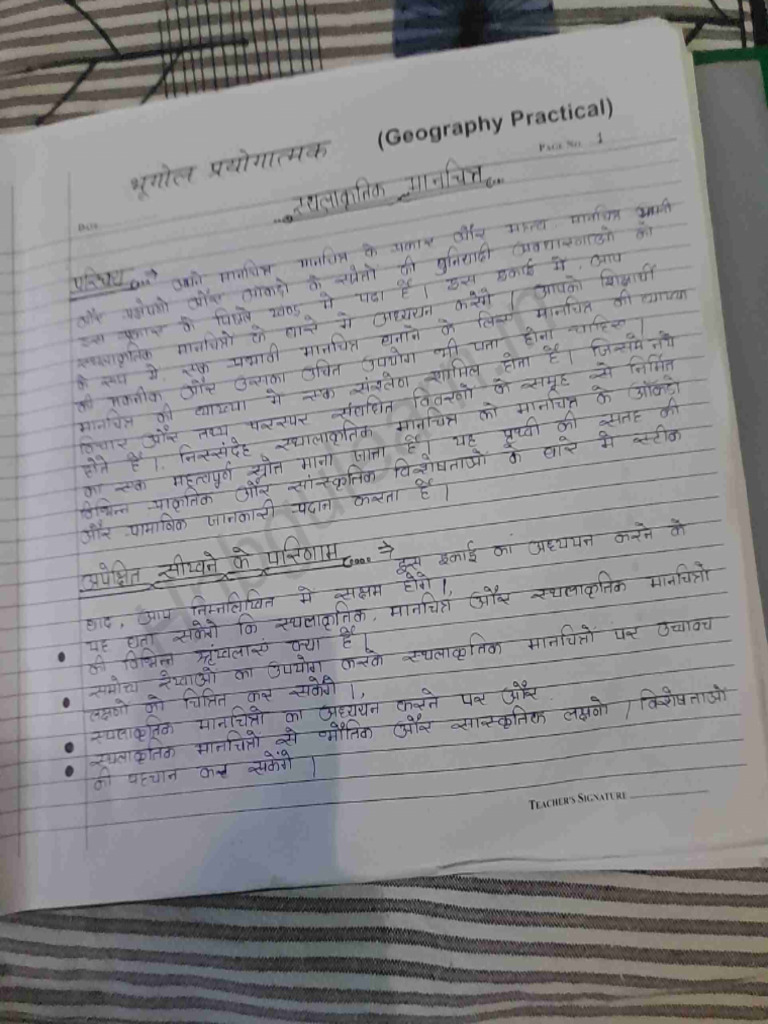 भूगोल प्रयोगात्मक (Geography Practical)
PAGE NO. 1
DATE
स्थलाकृतिक मानचित्र
परिचय → आपने मानचित्र, मानचित्र के प्रकार और मानव मानचित्र
और प्रक्षेपों और आंकड़ो के स्त्रोतो की बुनियादी अवधारणाओ को
इस प्रकार के पिछले 2005 में पढ़ा है। इस इकाई में, आप
स्थलाकृतिक मानचित्रो के बारे में अध्ययन करेंगे। आपको शिक्षार्थी
के रूप में, एक प्रभावी मानचित्र बनाने के लिए मानचित्र की व्याख्या
की तकनीक और उसका उचित उपयोग भी पता होना चाहिए।
मानचित्र की व्याख्या में एक संश्लेषण शामिल होता है। जिसमे नये
विचार और तथ्य परस्पर संबंधित विवरणो के समूह से निर्मित
होते है। निस्संदेह स्थालाकृतिक मानचित्र को मानचित्र के आँकड़ो
का एक महत्वपूर्ण स्रोत माना जाता है। यह पृथ्वी की सतह की
विभिन्न प्राकृतिक और सांस्कृतिक विशेषताओं के बारे में सटीक
और प्रामाणिक जानकारी प्रदान करता है।
अपेक्षित सीखने के परिणाम → इस इकाई का अध्ययन करने के
बाद, आप निम्नलिखित में सक्षम होंगे।
यह बता सकेंगे कि स्थलाकृतिक, मानचित्रो और स्थलाकृतिक मानचित्रो
• की विभिन्न श्रृंखलाएं क्या है।
समोच्च रेखाओ का उपयोग करके स्थलाकृतिक मानचित्रों पर उच्चावच
• लक्षणो को चित्रित कर सकेंगे।
स्थलाकृतिक मानचित्रो का अध्ययन करने पर और
• स्थलाकृतिक मानचित्रो से भौतिक और सांस्कृतिक लक्षणो / विशेषताओ
• की पहचान कर सकेंगे।
TEACHER'S SIGNATURE